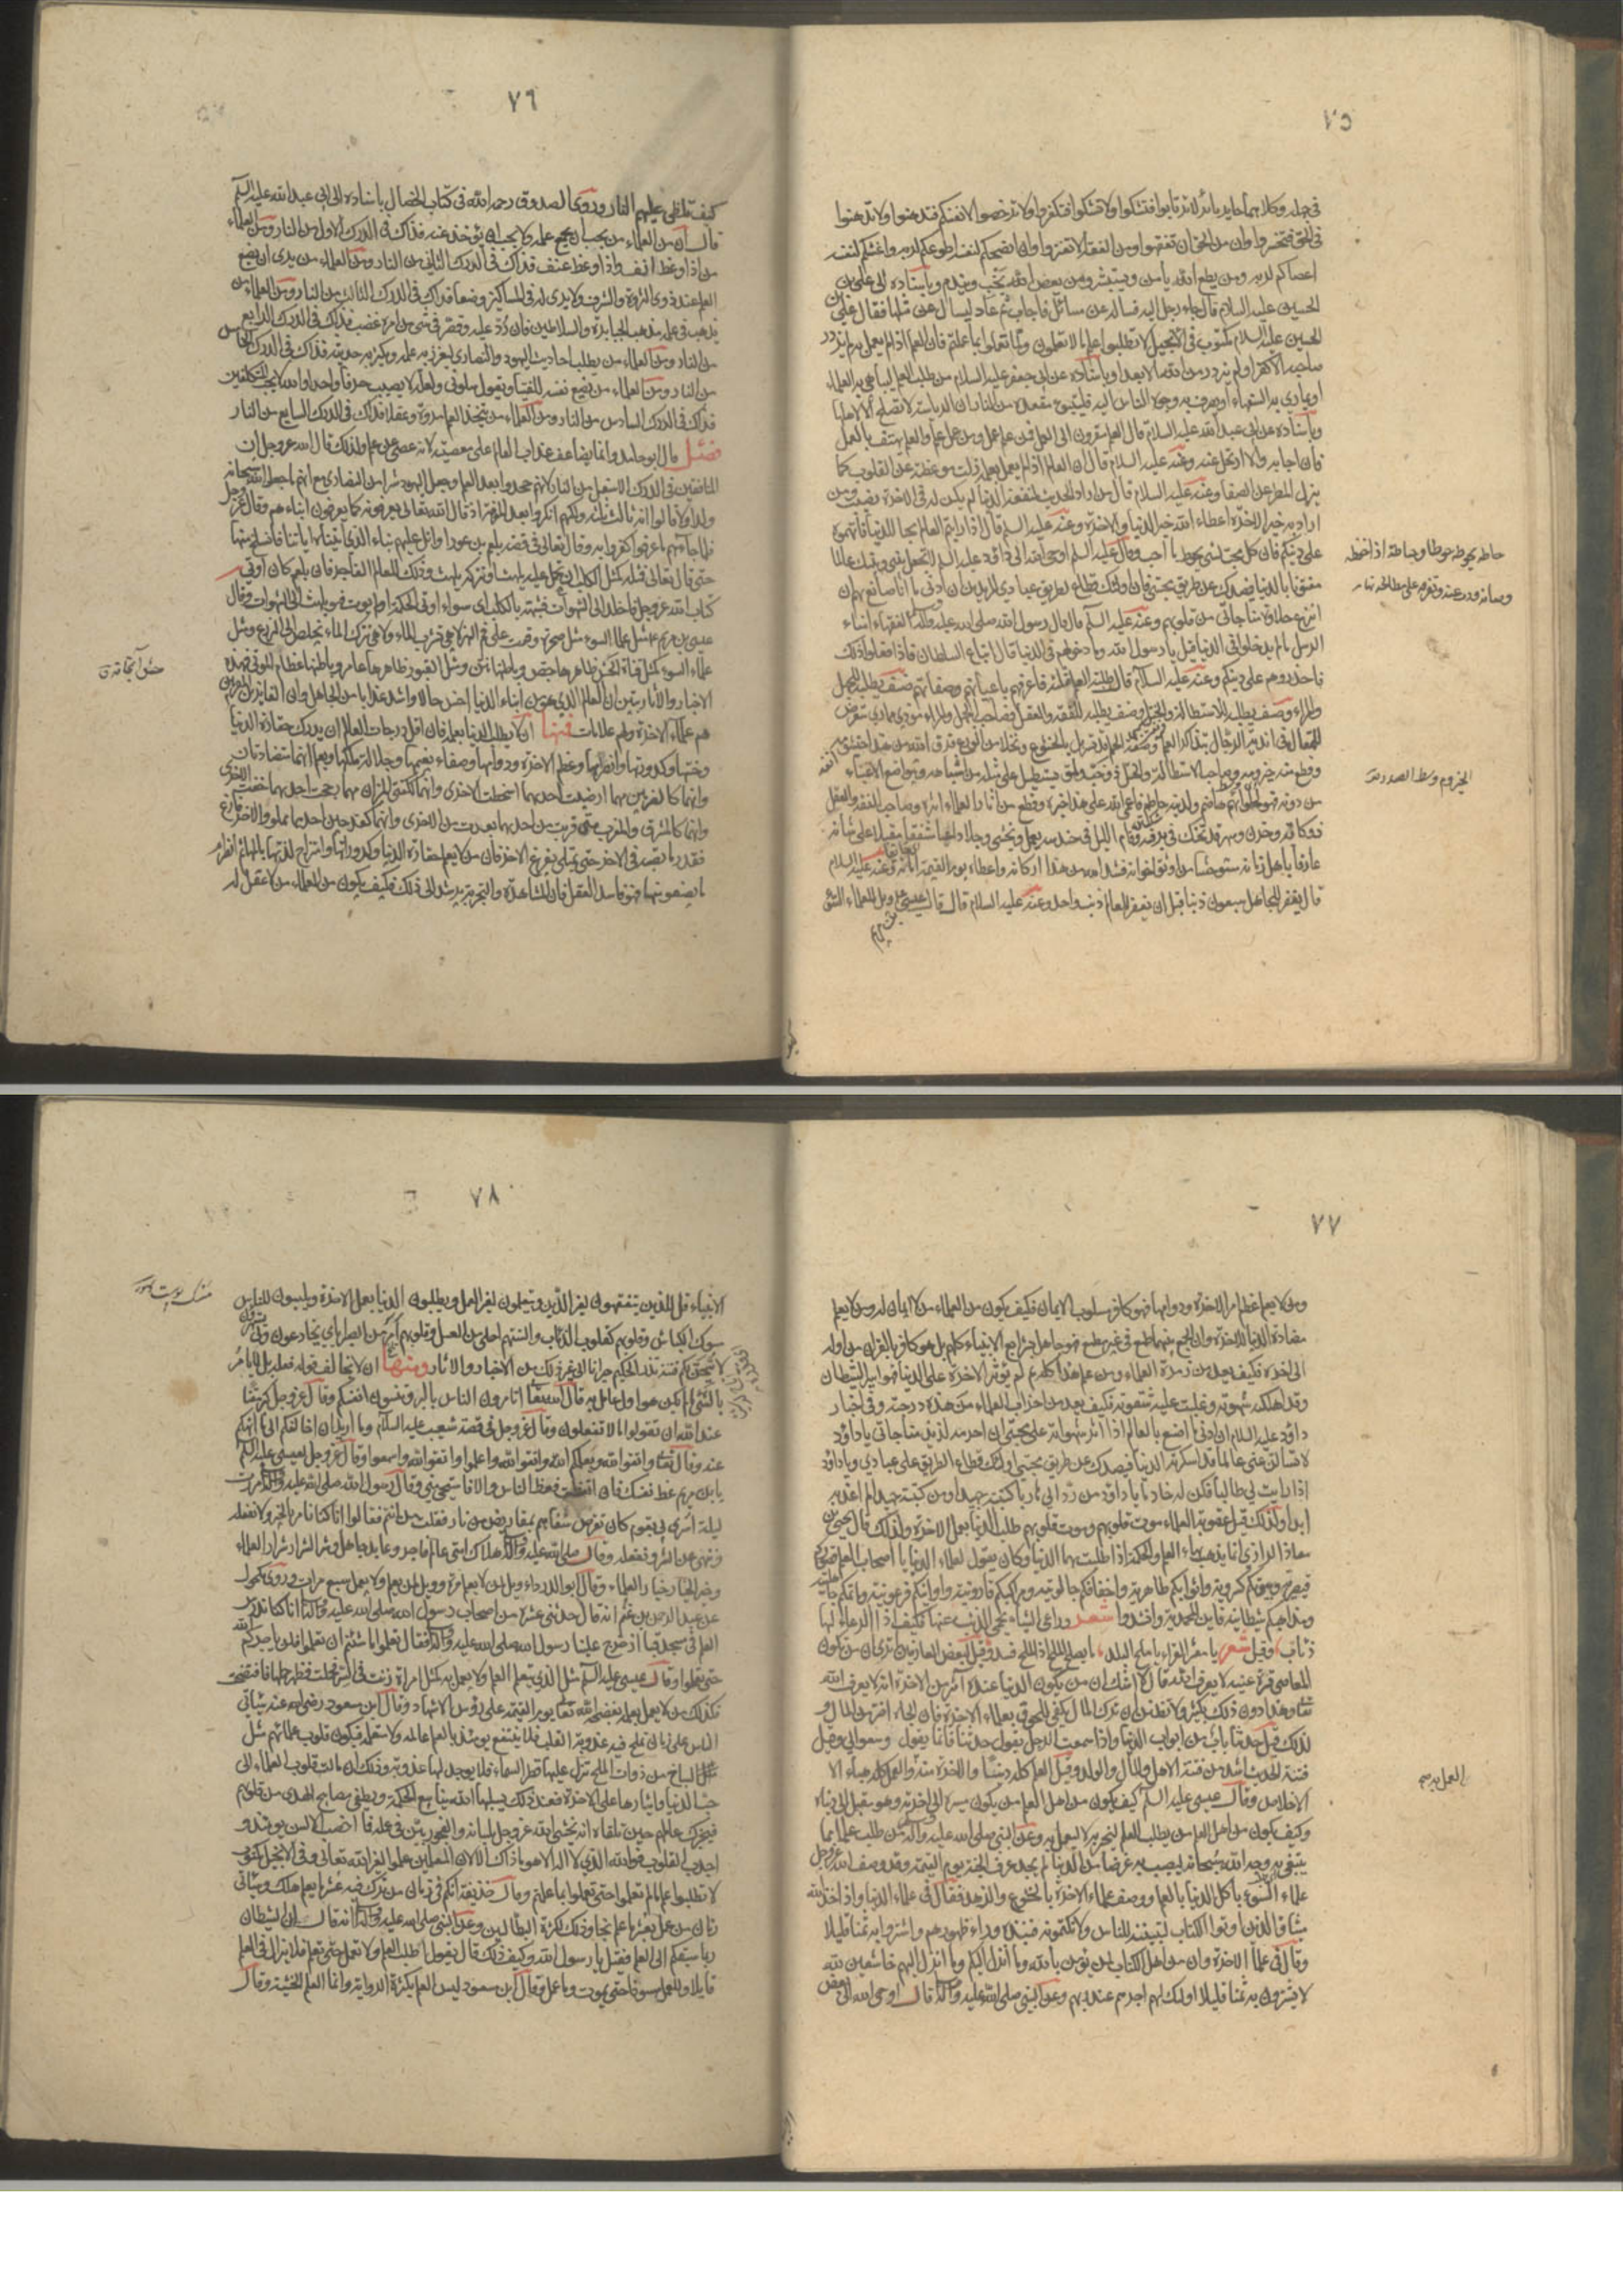 ٧٥
في جهله وكلاهما حاير بائر لا ترتابوا فتشكوا ولا تشكوا فتكفروا ولا ترخصوا لانفسكم فتدهنوا ولا تدهنوا
في الحق فتخسروا وان من الحق ان تفقهوا ومن الفقه ان لا تغتروا وان انصحكم لنفسه اطوعكم لربه واغشكم لنفسه
اعصاكم لربه ومن يطع الله يامن ويستبشر ومن يعص الله يخب ويندم وباسناده الى علي بن
الحسين عليه السلام قال جاء رجل اليه فساله عن مسائل فاجاب ثم عاد ليسال عن مثلها فقال علي بن
الحسين عليه السلام مكتوب في الانجيل لا تطلبوا علم ما لا تعلمون ولما تعملوا بما علمتم فان العلم اذا لم يعمل به لم يزدد
صاحبه الا كفرا ولم يزدد من الله الا بعدا وباسناده عن ابي جعفر عليه السلام من طلب العلم ليباهي به العلماء
او يماري به السفهاء او يصرف به وجوه الناس اليه فليتبوء مقعده من النار ان الرياسة لا تصلح الا لاهلها
وباسناده عن ابي عبد الله عليه السلام قال العلم مقرون الى العمل فمن علم عمل ومن عمل علم والعلم يهتف بالعمل
فان اجابه والا ارتحل عنه وعنه عليه السلام قال ان العالم اذا لم يعمل بعلمه زلت موعظته عن القلوب كما
يزل المطر عن الصفا وعنه عليه السلام قال من اراد الحديث لمنفعة الدنيا لم يكن له في الاخرة نصيب ومن
اراد به خير الاخرة اعطاه الله خير الدنيا والاخرة وعنه عليه السلام قال اذا رايتم العالم محبا للدنيا فاتهموه
على دينكم فان كل محب لشيء يحوط ما احب وقال عليه السلام اوحى الله الى داود عليه السلام لا تجعل بيني وبينك عالما
مفتونا بالدنيا فيصدك عن طريق محبتي فان اولئك قطاع طريق عبادي المريدين ان ادنى ما انا صانع بهم ان
انزع حلاوة مناجاتي من قلوبهم وعنه عليه السلام قال قال رسول الله صلى الله عليه وآله الفقهاء امناء
الرسل ما لم يدخلوا في الدنيا قيل يا رسول الله وما دخولهم في الدنيا قال اتباع السلطان فاذا فعلوا ذلك
فاحذروهم على دينكم وعنه عليه السلام قال طلبة العلم ثلثة فاعرفهم باعيانهم وصفاتهم صنف يطلبه للجهل
والمراء وصنف يطلبه للاستطالة والختل وصنف يطلبه للفقه والعقل فصاحب الجهل والمراء موذي مماري متعرض
للمقال في اندية الرجال بتذاكر العلم وصفة الحلم قد تسربل بالخشوع وتخلا من الورع فدق الله من هذا خيشومه
وقطع منه حيزومه وصاحب الاستطالة والختل ذو خب وملق يستطيل على مثله من اشباهه ويتواضع للاغنياء
من دونه فهو لحلوائهم هاضم ولدينه حاطم فاعمى الله على هذا خبره وقطع من اثار العلماء اثره وصاحب الفقه والعقل
ذو كآبة وحزن وسهر قد تحنك في برنسه وقام الليل في حندسه يعمل ويخشى وجلا داعيا مشفقا مقبلا على شانه
عارفا باهل زمانه مستوحشا من اوثق اخوانه فشد الله من هذا اركانه واعطاه يوم القيمة امانه وعنه عليه السلام
قال يغفر للجاهل سبعون ذنبا قبل ان يغفر للعالم ذنب واحد وعنه عليه السلام قال قال عيسى ويل للعلماء السوء
بن مريم
حاطه يحوطه حوطا وحياطة اذا حفظه
وصانه وذب عنه وتوفر على مصالحه نهايه
الحيزوم وسط الصدر
٧٦
كيف تلظى عليهم النار وروى الصدوق رحمه الله في كتاب الخصال باسناده الى ابي عبد الله عليه السلام
قال ان من العلماء من يحب ان يجمع علمه ولا يحب ان يؤخذ عنه فذاك في الدرك الاول من النار ومن العلماء
من اذا وعظ انف واذا وعظ عنف فذاك في الدرك الثاني من النار ومن العلماء من يرى ان يضع
العلم عند ذوي الثروة والشرف ولا يرى له في المساكين وضعا فذاك في الدرك الثالث من النار ومن العلماء من
يذهب في علمه مذهب الجبابرة والسلاطين فان رد عليه وقصر في شيء من امره غضب فذاك في الدرك الرابع
من النار ومن العلماء من يطلب احاديث اليهود والنصارى ليغزر به علمه ويكثر به حديثه فذاك في الدرك الخامس
من النار ومن العلماء من يضع نفسه للفتيا ويقول سلوني ولعله لا يصيب حرفا واحدا والله لا يحب المتكلفين
فذاك في الدرك السادس من النار ومن العلماء من يتخذ العلم مروة وعقلا فذاك في الدرك السابع من النار
فصل قال ابو حامد وانما يضاعف عذاب العالم على معصيته لانه عصى عن علم ولذلك قال الله عز وجل ان
المنافقين في الدرك الاسفل من النار لانهم جحدوا بعد العلم وجعل اليهود شرا من النصارى مع انهم ما جعلوا لله سبحانه
ولدا ولا قالوا انه ثالث ثلثة ولكنهم انكروا بعد المعرفة اذ قال الله تعالى يعرفونه كما يعرفون ابناءهم وقال عز وجل
فلما جاءهم ما عرفوا كفروا به وقال تعالى في قصة بلعم بن عورا واتل عليهم نباء الذي آتيناه اياتنا فانسلخ منها
حتى قال تعالى فمثله كمثل الكلب ان تحمل عليه يلهث او تتركه يلهث وذلك للعالم الفاجر فان بلعم كان اوتي
كتاب الله عز وجل فاخلد الى الشهوات فشبه بالكلب اي سواء اوتي الحكمة او لم يؤت فهو يلهث الى الشهوات وقال
عيسى بن مريم عليه السلام مثل علماء السوء مثل صخرة وقعت على فم النهر لا هي تشرب الماء ولا هي تترك الماء يخلص الى الزرع ومثل
علماء السوء كمثل قناة الحش ظاهرها جص وباطنها نتن ومثل القبور ظاهرها عامر وباطنها عظام الموتى فهذه
الاخبار والاثار تبين ان العالم الذي هو من ابناء الدنيا اخس حالا واشد عذابا من الجاهل وان الفايزين المقربين
هم علماء الاخرة ولهم علامات فمنها ان لا يطلب الدنيا بعلمه فان اقل درجات العالم ان يدرك حقارة الدنيا
وخستها وكدورتها وانصرامها وعظم الاخرة ودوامها وصفاء نعيمها وجلالة ملكها ويعلم انهما متضادتان
وانهما كالضرتين مهما ارضيت احدهما اسخطت الاخرى وانهما ككفتي الميزان مهما رجحت احدهما خفت الاخرى
وانهما كالمشرق والمغرب متى قربت من احدهما بعدت من الاخرى وانهما كقدحين احدهما مملو والاخر فارغ
فبقدر ما يصب في الاخر حتى يمتلي يفرغ الاخر فان من لا يعرف حقارة الدنيا وكدوراتها وامتزاج لذتها بالمها ثم انصرام
ما يصفو منها فهو فاسد العقل فان المشاهدة والتجربة يرشد الى ذلك فكيف يكون من العلماء من لا عقل له
٧٧
ومن لا يعلم عظم امر الاخرة ودوامها فهو كافر مسلوب الايمان فكيف يكون من العلماء من لا ايمان له ومن لا يعلم
مضادة الدنيا للاخرة وان الجمع بينهما طمع في غير مطمع فهو جاهل بشرايع الانبياء كلهم بل هو كافر بالقران من اوله
الى اخره فكيف يعد من زمرة العلماء ومن علم هذا كله ثم لم يؤثر الاخرة على الدنيا فهو اسير الشيطان
وقد اهلكته شهوته وغلبت عليه شقوته فكيف يعد من احزاب العلماء من هذه درجته وفي اخبار
داود عليه السلام ان ادنى ما اصنع بالعالم اذا اثر شهواته على محبتي ان احرمه لذيذ مناجاتي يا داود
لا تسال عني عالما قد اسكرته الدنيا فيصدك عن طريق محبتي اولئك قطاع الطريق على عبادي ويا داود
اذا رايت لي طالبا فكن له خادما يا داود من رد الي هاربا كتبته جهبذا ومن كتبته جهبذا لم اعذبه
ابدا ولذلك قيل عقوبة العلماء موت قلوبهم وموت قلوبهم طلب الدنيا بعمل الاخرة ولذلك قال يحيى بن
معاذ الرازي انما يذهب بهاء العلم والحكمة اذا طلبت بهما الدنيا وكان يقول لعلماء الدنيا يا اصحاب العلم قصوركم
قيصرية وبيوتكم كسروية واثوابكم طاهرية واخفافكم جالوتية ومراكبكم قارونية واوانيكم فرعونية وماتمكم جاهلية
ومذاهبكم شيطانية فاين المحمدية وانشدوا شعر وراعي الشاء يحمي الذئب عنها فكيف اذا الرعاء لها
ذئاب وقيل شعر يا معشر القراء يا ملح البلد ما يصلح الملح اذا الملح فسد وقيل لبعض العارفين اترى ان من يكون
المعاصي قرة عينيه لا يعرف الله قال لا اشك ان من يكون الدنيا عنده آثر من الاخرة انه لا يعرف الله
تعالى وهذا دون ذلك بكثير ولا تظنن ان ترك المال يكفي للحوق بعلماء الاخرة فان الجاه اضر من المال و
لذلك قيل حدثنا باب من ابواب الدنيا واذا سمعت الرجل يقول حدثنا فانما يقول وسعوا لي وقيل
فتنة الحديث اشد من فتنة الاهل والمال والولد وقيل العلم كله دنيا والاخرة منه العمل به والعمل كله هباء الا
الاخلاص وقال عيسى عليه السلام كيف يكون من اهل العلم من يكون مسيره الى اخرته وهو مقبل الى دنياه
وكيف يكون من اهل العلم من يطلب العلم ليخبر به لا ليعمل به وعن النبي صلى الله عليه وآله من طلب علما مما
يبتغى به وجه الله سبحانه ليصيب به عرضا من الدنيا لم يجد عرف الجنة يوم القيمة وقد وصف الله عز وجل
علماء السوء باكل الدنيا بالعلم ووصف علماء الاخرة بالخشوع والزهد فقال في علماء الدنيا واذ اخذ الله
ميثاق الذين اوتوا الكتاب لتبيننه للناس ولا تكتمونه فنبذوه وراء ظهورهم واشتروا به ثمنا قليلا
وقال في علماء الاخرة وان من اهل الكتاب لمن يؤمن بالله وما انزل اليكم وما انزل اليهم خاشعين لله
لا يشترون به ثمنا قليلا اولئك لهم اجرهم عند ربهم وعن النبي صلى الله عليه وآله قال اوحى الله الى بعض
العمل به
٧٨
الانبياء قل للذين يتفقهون لغير الدين ويتعلمون لغير العمل ويطلبون الدنيا بعمل الاخرة ويلبسون للناس
مسوك الكباش وقلوبهم كقلوب الذئاب والسنتهم احلى من العسل وقلوبهم امر من الصبر اياي يخادعون وبي يستهزؤن
لاتيحن لكم فتنة تذر الحكيم حيرانا الى غير ذلك من الاخبار والاثار ومنها ان لا يخالف قوله فعله بل لا يامر
بالشيء ما لم يكن هو اول عامل به قال تعالى اتامرون الناس بالبر وتنسون انفسكم وقال عز وجل كبر مقتا
عند الله ان تقولوا ما لا تفعلون وقال عز وجل في قصة شعيب عليه السلام وما اريد ان اخالفكم الى ما انهيكم
عنه وقال تعالى واتقوا الله ويعلمكم الله واتقوا الله واعلموا واتقوا الله واسمعوا وقال عز وجل لعيسى عليه السلام
يا بن مريم عظ نفسك فان اتعظت فعظ الناس والا فاستحي مني وقال رسول الله صلى الله عليه وآله مررت
ليلة اسري بي بقوم كان تقرض شفاههم بمقاريض من نار فقلت من انتم فقالوا انا كنا نامر بالخير ولا نفعله
وننهى عن الشر ونفعله وقال صلى الله عليه وآله هلاك امتي عالم فاجر وعابد جاهل وشر الشرار شرار العلماء
وخير الخيار خيار العلماء وقال ابو الدرداء ويل لمن لا يعلم مرة وويل لمن يعلم ولا يعمل سبع مرات وروى مكحول
عن عبد الرحمن بن غنم انه قال حدثني عشرة من اصحاب رسول الله صلى الله عليه وآله قالوا انا كنا ندرس
العلم في مسجد قبا اذ خرج علينا رسول الله صلى الله عليه وآله فقال تعلموا ما شئتم ان تعلموا فلن ياجركم الله
حتى تعملوا وقال عيسى عليه السلام مثل الذي يتعلم العلم ولا يعمل به كمثل امراة زنت في السر فحملت فظهر حملها فافتضحت
فكذلك من لا يعمل بعلمه يفضحه الله تعالى يوم القيمة على رؤس الاشهاد وقال ابن مسعود رضي الله عنه سياتي
على الناس زمان تملح فيه عذوبة القلب فلا ينتفع يومئذ بالعلم عالمه ولا متعلمه فيكون قلوب علمائهم مثل
السباخ من ذوات الملح تنزل عليها قطر السماء فلا يوجد لها عذوبة وذلك اذا مالت قلوب العلماء الى
حب الدنيا وايثارها على الاخرة فعند ذلك يسلبها الله ينابيع الحكمة ويطفي مصابيح الهدى من قلوبهم
فيخبرك عالمهم حين تلقاه انه يخشى الله عز وجل بلسانه والفجور بين في عمله فما اخصب الالسن يومئذ و
اجدب القلوب فوالله الذي لا اله الا هو ما ذاك الا لان المعلمين علموا لغير الله تعالى وفي الانجيل مكتوب
لا تطلبوا علم ما لم تعلموا حتى تعملوا بما علمتم وقال حذيفة انكم في زمان من ترك فيه عشر ما يعلم هلك وسياتي
زمان من عمل بعشر ما علم نجا وذلك لكثرة البطالين وعن النبي صلى الله عليه وآله انه قال ان الشيطان
ربما سبقكم الى العلم فقيل يا رسول الله وكيف ذلك قال يقول اطلب العلم ولا تعمل حتى تعلم فلا يزال في العلم
قايلا وللعمل مسوفا حتى يموت وما عمل وقال ابن مسعود ليس العلم بكثرة الرواية وانما العلم الخشية وقال